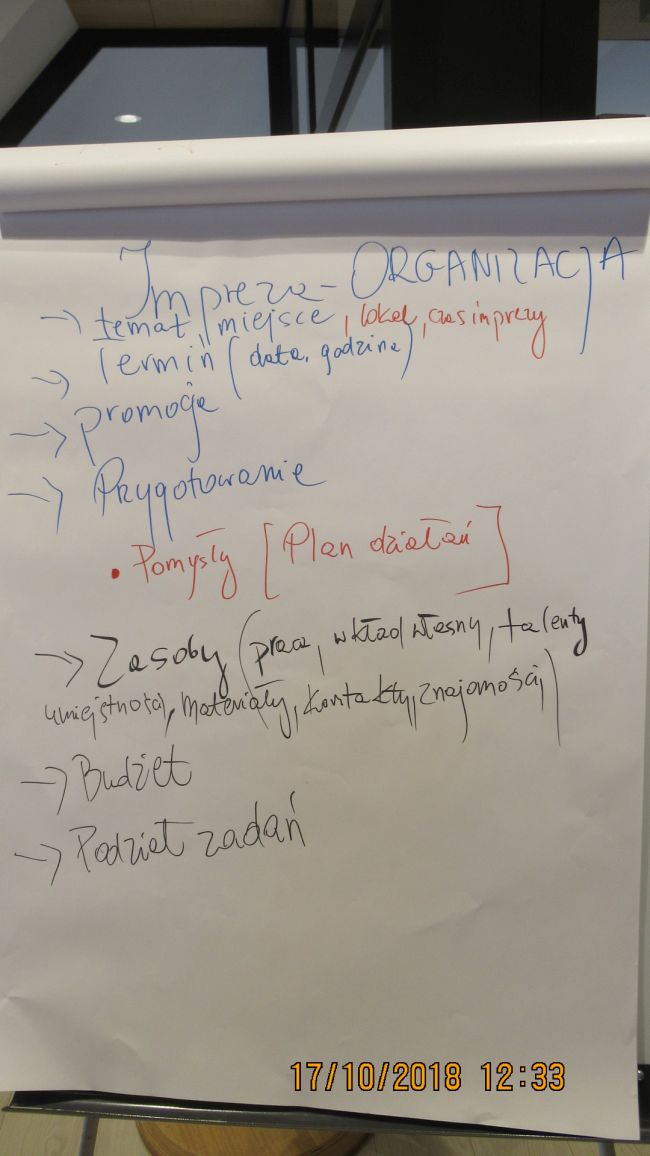 Impreza - ORGANIZACJA
→ temat, miejsce, lokal, czas imprezy
→ Termin (data, godzina)
→ promocja
→ Przygotowanie
• Pomysły [Plan działań]
→ Zasoby (praca, wkład własny, talenty
umiejętności, materiały, kontakty, znajomości,)
→ Budżet
→ Podział zadań
17/10/2018 12:33